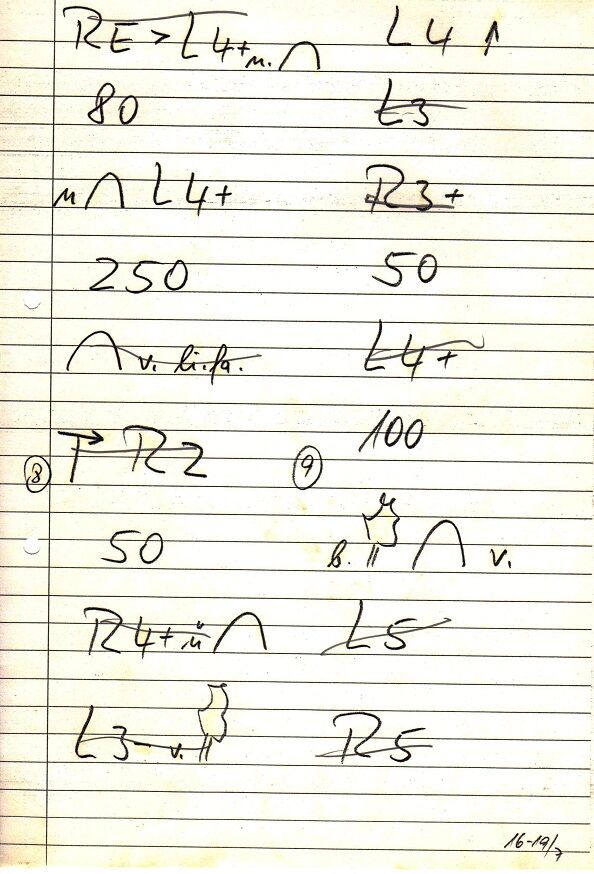 RE > L4+ ü. ∩
80
u ∩ L4+
250
∩ v. li. fa.
⑧ R2
50
R4+ ü ∩
L3- v.
L4 ↑
L3
R3+
50
L4+
100
⑨
b. ∩ v.
L5
R5
16-19/7